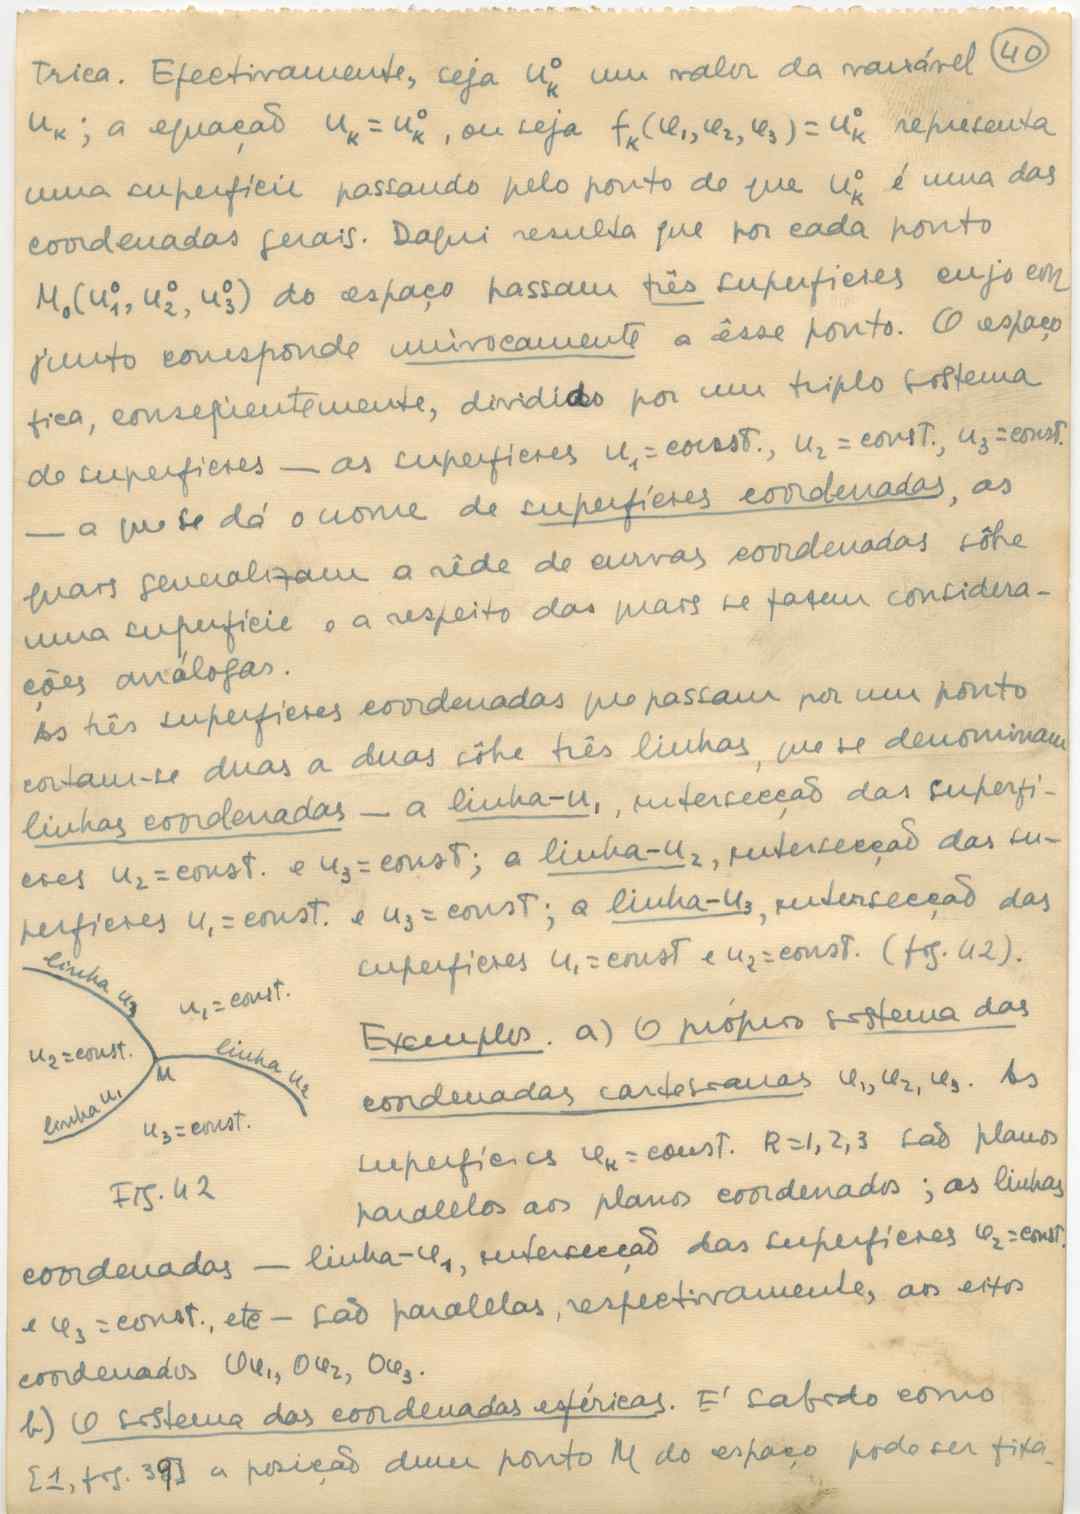 40
trica. Efectivamente, seja u_k^0 um valor da variável
u_k; a equação u_k = u_k^0, ou seja f_k(φ_1, φ_2, φ_3) = u_k^0 representa
uma superfície passando pelo ponto de que u_k^0 é uma das
coordenadas gerais. Daqui resulta que por cada ponto
M_0(u_1^0, u_2^0, u_3^0) do espaço passam três superfícies cujo con
junto corresponde unìvocamente a êsse ponto. O espaço
fica, conseqüentemente, dividido por um triplo sistema
de superfícies — as superfícies u_1 = const., u_2 = const., u_3 = const.
— a que se dá o nome de superfícies coordenadas, as
quais generalizam a rêde de curvas coordenadas sôbre
uma superfície e a respeito das quais se fazem considera-
ções análogas.
As três superfícies coordenadas que passam por um ponto
cortam-se duas a duas sôbre três linhas, que se denominam
linhas coordenadas — a linha-u_1, intersecção das superfí-
cies u_2 = const. e u_3 = const; a linha-u_2, intersecção das su-
perfícies u_1 = const. e u_3 = const; a linha-u_3, intersecção das
superfícies u_1 = const e u_2 = const. (fig. 42).
linha u_3
u_1 = const.
u_2 = const.
M
linha u_2
linha u_1
u_3 = const.
Fig. 42
Exemplos. a) O próprio sistema das
coordenadas cartesianas φ_1, φ_2, φ_3. As
superfícies φ_k = const. k = 1, 2, 3 são planos
paralelos aos planos coordenados; as linhas
coordenadas — linha-φ_1, intersecção das superfícies φ_2 = const.
e φ_3 = const., etc — são paralelas, respectivamente, aos eixos
coordenados Oφ_1, Oφ_2, Oφ_3.
b) O sistema das coordenadas esféricas. E' sabido como
[1, fig. 39] a posição dum ponto M do espaço pode ser fixa_